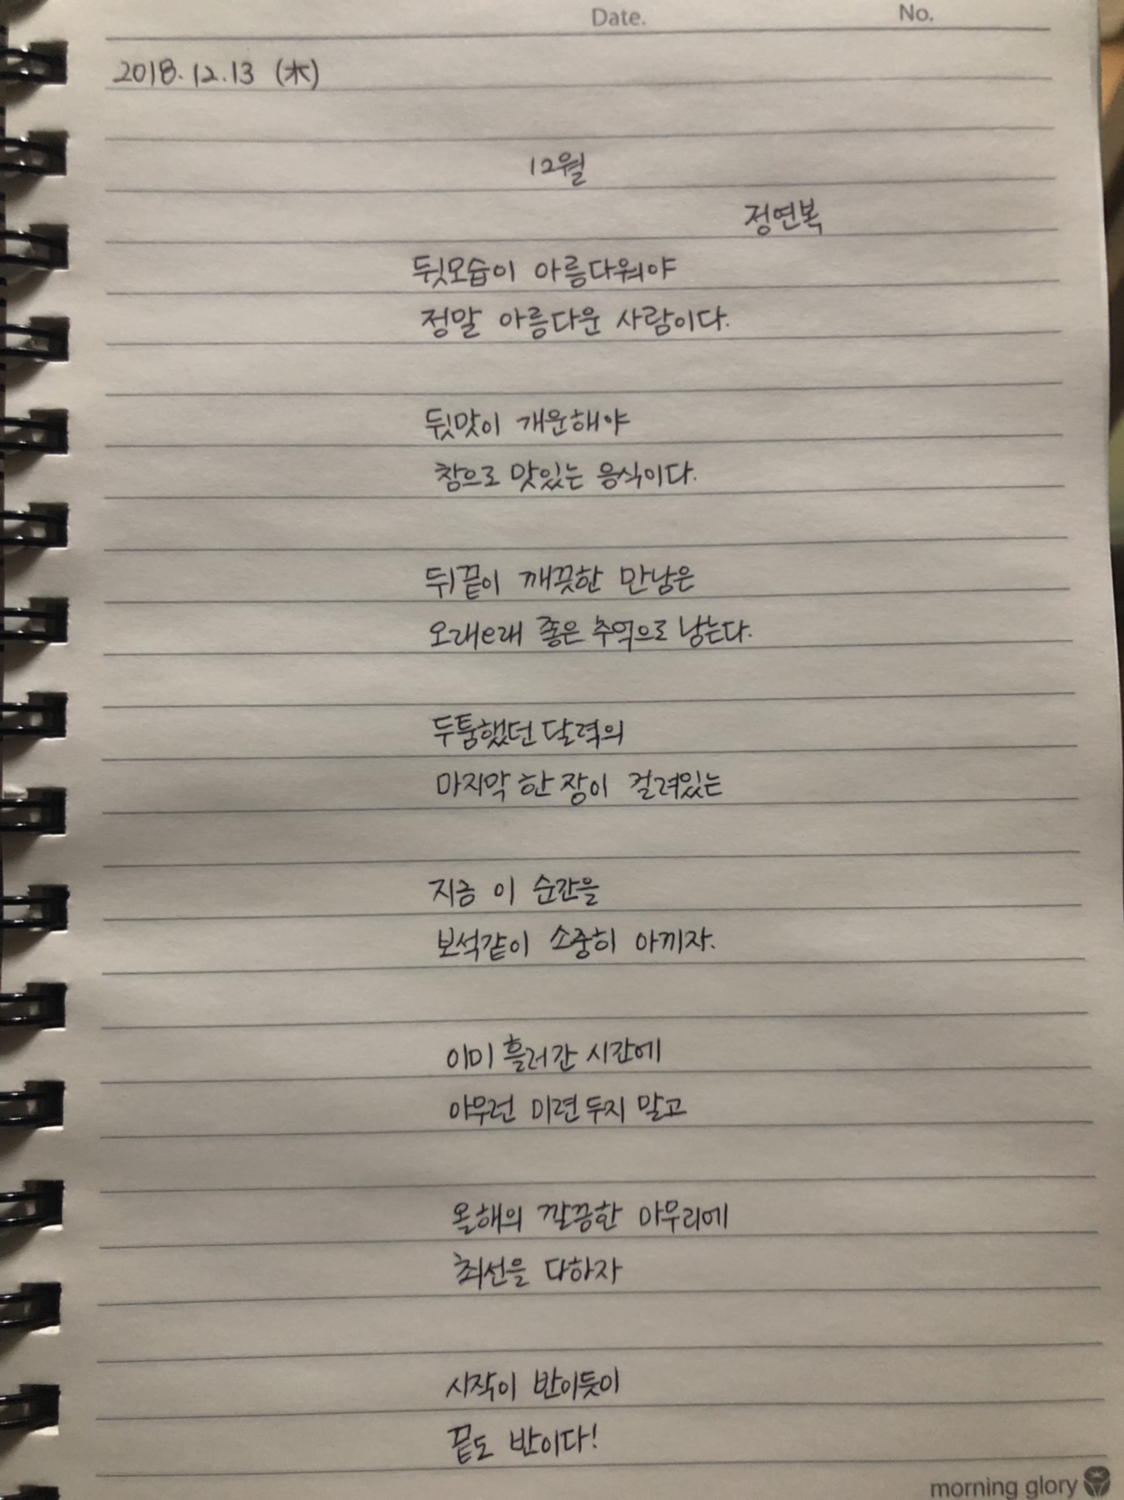 Date. No.
2018. 12. 13 (木)
12월
정연복
뒷모습이 아름다워야
정말 아름다운 사람이다.
뒷맛이 개운해야
참으로 맛있는 음식이다.
뒤끝이 깨끗한 만남은
오래오래 좋은 추억으로 남는다.
두툼했던 달력의
마지막 한 장이 걸려있는
지금 이 순간을
보석같이 소중히 아끼자.
이미 흘러간 시간에
아무런 미련 두지 말고
올해의 깔끔한 마무리에
최선을 다하자
시작이 반이듯이
끝도 반이다!
morning glory